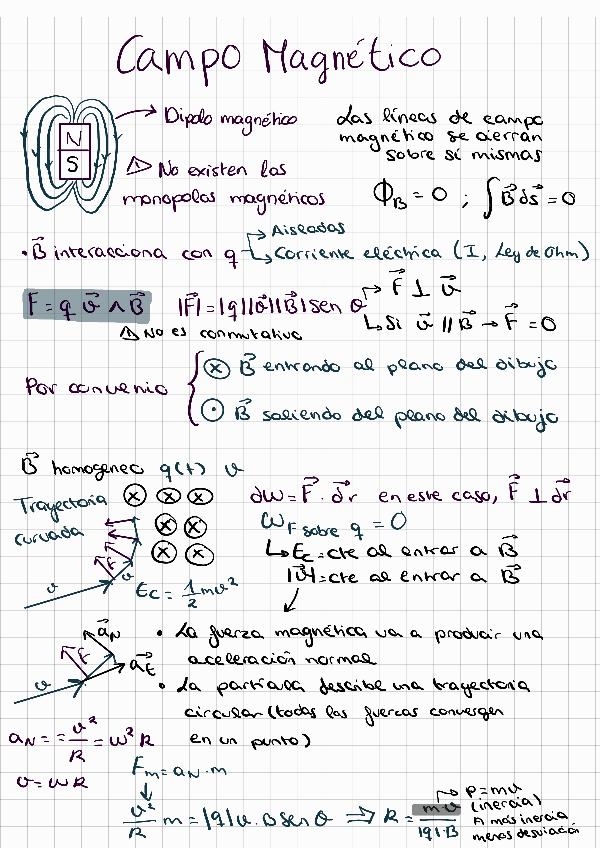 Campo Magnético
N
S
Dipolo magnético
⚠ No existen los
monopolos magnéticos
Las líneas de campo
magnético se cierran
sobre sí mismas
Φ_B = 0 ; ∫ B⃗ ds⃗ = 0
• B⃗ interacciona con q
Aisladas
Corriente eléctrica (I, Ley de Ohm)
F = q v⃗ ∧ B⃗
|F⃗| = |q||v⃗||B⃗| sen θ
F⃗ ⊥ v⃗
Si v⃗ // B⃗ → F⃗ = 0
⚠ No es conmutativo
Por convenio
⊗ B⃗ entrando al plano del dibujo
⊙ B⃗ saliendo del plano del dibujo
B⃗ homogeneo q(+) v
Trayectoria
curvada
F
v
v
Ec = 1/2 mv²
dW = F⃗ · dr⃗ en este caso, F⃗ ⊥ dr⃗
W_F sobre q = 0
↳ Ec = cte al entrar a B⃗
|v⃗| = cte al entrar a B⃗
a⃗_N
F
v
a⃗_t
• La fuerza magnética va a producir una
aceleración normal
• La partícula describe una trayectoria
circular (todas las fuerzas convergen
en un punto)
a_N = = v²/R = ω² R
v = ωR
F_m = a_N · m
v²/R m = |q| v · B sen θ ⇒ R = m·v / |q|·B
p = mv
(inercia)
A más inercia
menos desviación